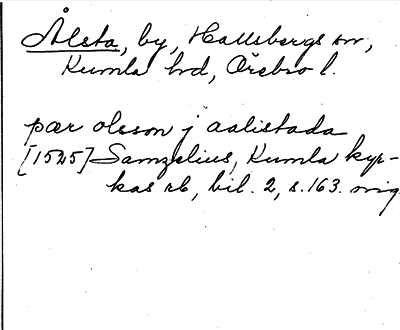 Ålsta, by, Hallsbergs sn,
Kumla hd, Örebro l.
pær olsson j aalistada
[1525] Samzelius, Kumla kyr-
kas rb, bil. 2, s. 163. orig.